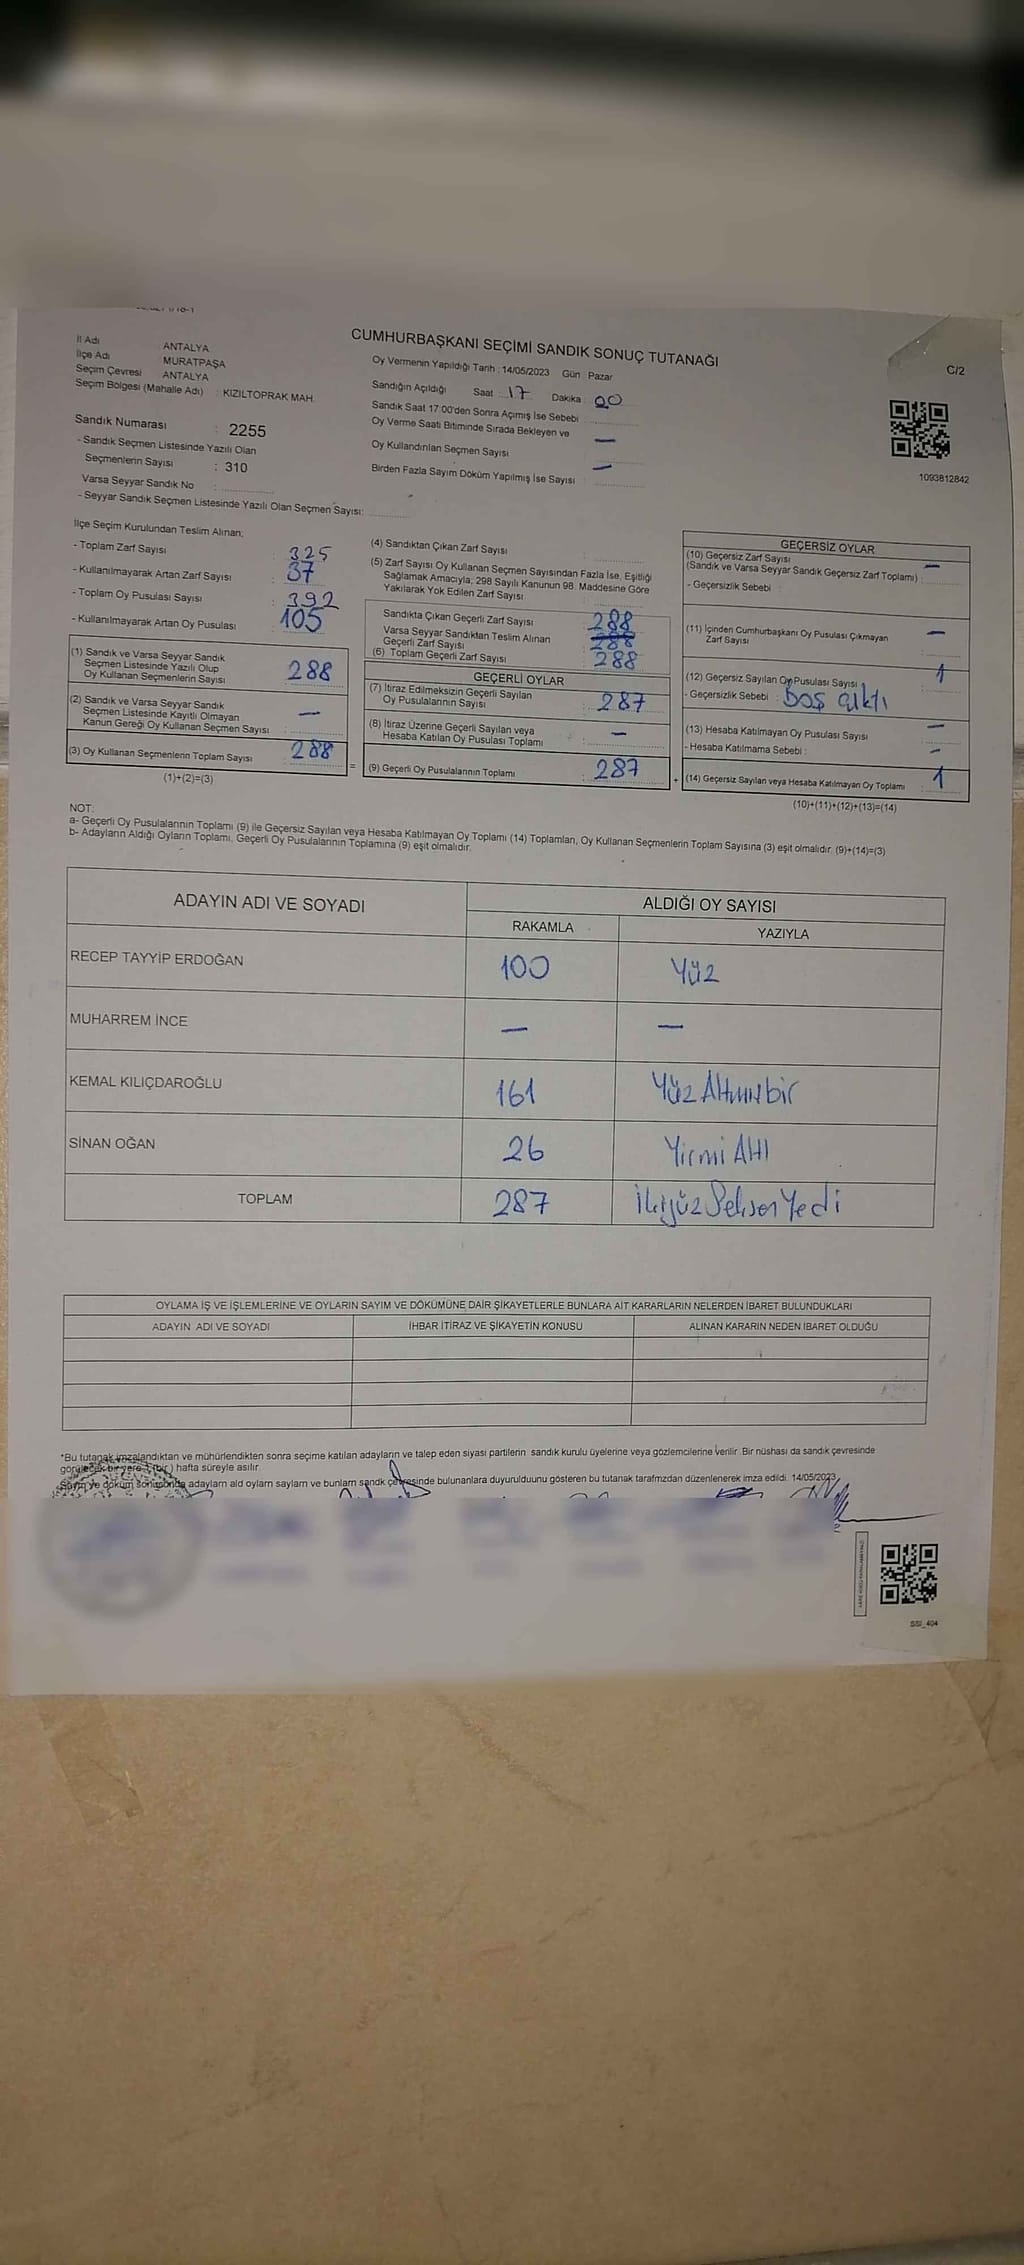 CUMHURBAŞKANI SEÇİMİ SANDIK SONUÇ TUTANAĞI
C/2
İl Adı ANTALYA
İlçe Adı MURATPAŞA
Seçim Çevresi ANTALYA
Seçim Bölgesi (Mahalle Adı) : KIZILTOPRAK MAH.
Sandık Numarası : 2255
- Sandık Seçmen Listesinde Yazılı Olan
Seçmenlerin Sayısı : 310
Varsa Seyyar Sandık No :
- Seyyar Sandık Seçmen Listesinde Yazılı Olan Seçmen Sayısı:
Oy Vermenin Yapıldığı Tarih : 14/05/2023 Gün : Pazar
Sandığın Açıldığı Saat : 17 Dakika : 00
Sandık Saat 17:00'den Sonra Açımış İse Sebebi
Oy Verme Saati Bitiminde Sırada Bekleyen ve —
Oy Kullandırılan Seçmen Sayısı
Birden Fazla Sayım Döküm Yapılmış İse Sayısı : —
1093812842
İlçe Seçim Kurulundan Teslim Alınan;
- Toplam Zarf Sayısı : 325
- Kullanılmayarak Artan Zarf Sayısı : 37
- Toplam Oy Pusulası Sayısı : 392
- Kullanılmayarak Artan Oy Pusulası : 105
(1) Sandık ve Varsa Seyyar Sandık
Seçmen Listesinde Yazılı Olup
Oy Kullanan Seçmenlerin Sayısı : 288
(2) Sandık ve Varsa Seyyar Sandık
Seçmen Listesinde Kayıtlı Olmayan
Kanun Gereği Oy Kullanan Seçmen Sayısı : —
(3) Oy Kullanan Seçmenlerin Toplam Sayısı : 288
(1)+(2)=(3)
=
(4) Sandıktan Çıkan Zarf Sayısı
(5) Zarf Sayısı Oy Kullanan Seçmen Sayısından Fazla İse, Eşitliği
Sağlamak Amacıyla; 298 Sayılı Kanunun 98. Maddesine Göre
Yakılarak Yok Edilen Zarf Sayısı
Sandıkta Çıkan Geçerli Zarf Sayısı : 288
Varsa Seyyar Sandıktan Teslim Alınan
Geçerli Zarf Sayısı : 288
(6) Toplam Geçerli Zarf Sayısı : 288
GEÇERLİ OYLAR
(7) İtiraz Edilmeksizin Geçerli Sayılan
Oy Pusulalarının Sayısı : 287
(8) İtiraz Üzerine Geçerli Sayılan veya
Hesaba Katılan Oy Pusulası Toplamı : —
(9) Geçerli Oy Pusulalarının Toplamı : 287
+
GEÇERSİZ OYLAR
(10) Geçersiz Zarf Sayısı
(Sandık ve Varsa Seyyar Sandık Geçersiz Zarf Toplamı) : —
- Geçersizlik Sebebi :
(11) İçinden Cumhurbaşkanı Oy Pusulası Çıkmayan
Zarf Sayısı : —
(12) Geçersiz Sayılan Oy Pusulası Sayısı : 1
- Geçersizlik Sebebi : Boş çıktı
(13) Hesaba Katılmayan Oy Pusulası Sayısı : —
- Hesaba Katılmama Sebebi : —
(14) Geçersiz Sayılan veya Hesaba Katılmayan Oy Toplamı : 1
(10)+(11)+(12)+(13)=(14)
NOT:
a- Geçerli Oy Pusulalarının Toplamı (9) ile Geçersiz Sayılan veya Hesaba Katılmayan Oy Toplamı (14) Toplamları, Oy Kullanan Seçmenlerin Toplam Sayısına (3) eşit olmalıdır. (9)+(14)=(3)
b- Adayların Aldığı Oyların Toplamı, Geçerli Oy Pusulalarının Toplamına (9) eşit olmalıdır.
ADAYIN ADI VE SOYADI
ALDIĞI OY SAYISI
RAKAMLA YAZIYLA
RECEP TAYYİP ERDOĞAN 100 Yüz
MUHARREM İNCE — —
KEMAL KILIÇDAROĞLU 161 Yüz Altmışbir
SİNAN OĞAN 26 Yirmi Altı
TOPLAM 287 İkiyüz Seksen Yedi
OYLAMA İŞ VE İŞLEMLERİNE VE OYLARIN SAYIM VE DÖKÜMÜNE DAİR ŞİKAYETLERLE BUNLARA AİT KARARLARIN NELERDEN İBARET BULUNDUKLARI
ADAYIN ADI VE SOYADI İHBAR İTİRAZ VE ŞİKAYETİN KONUSU ALINAN KARARIN NEDEN İBARET OLDUĞU
*Bu tutanak imzalandıktan ve mühürlendikten sonra seçime katılan adayların ve talep eden siyasi partilerin sandık kurulu üyelerine veya gözlemcilerine verilir. Bir nüshası da sandık çevresinde
görülecek bir yere 1 (bir) hafta süreyle asılır.
Sayım ve döküm sonucunda adaylarn ald oylarn saylarn ve bunlarn sandk çevresinde bulunanlara duyurulduunu gösteren bu tutanak tarafmzdan düzenlenerek imza edildi. 14/05/2023
SSI_404